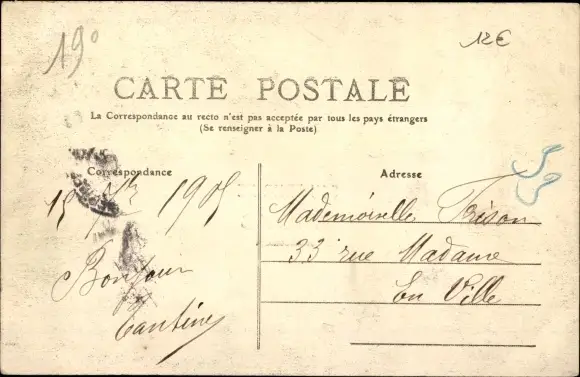 190
12€
CARTE POSTALE
La Correspondance au recto n'est pas acceptée par tous les pays étrangers
(Se renseigner à la Poste)
Correspondance
Adresse
15 1905
Bonjour
Tantine
Mademoiselle Frison
33 rue Madame
En Ville